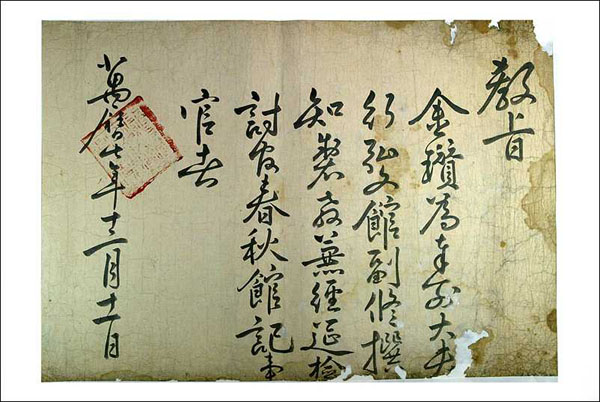 敎旨
金瓚爲奉大夫
行弘文館副修撰
知製敎兼經筵檢
討官春秋館記事
官者
萬曆七年十二月十一日